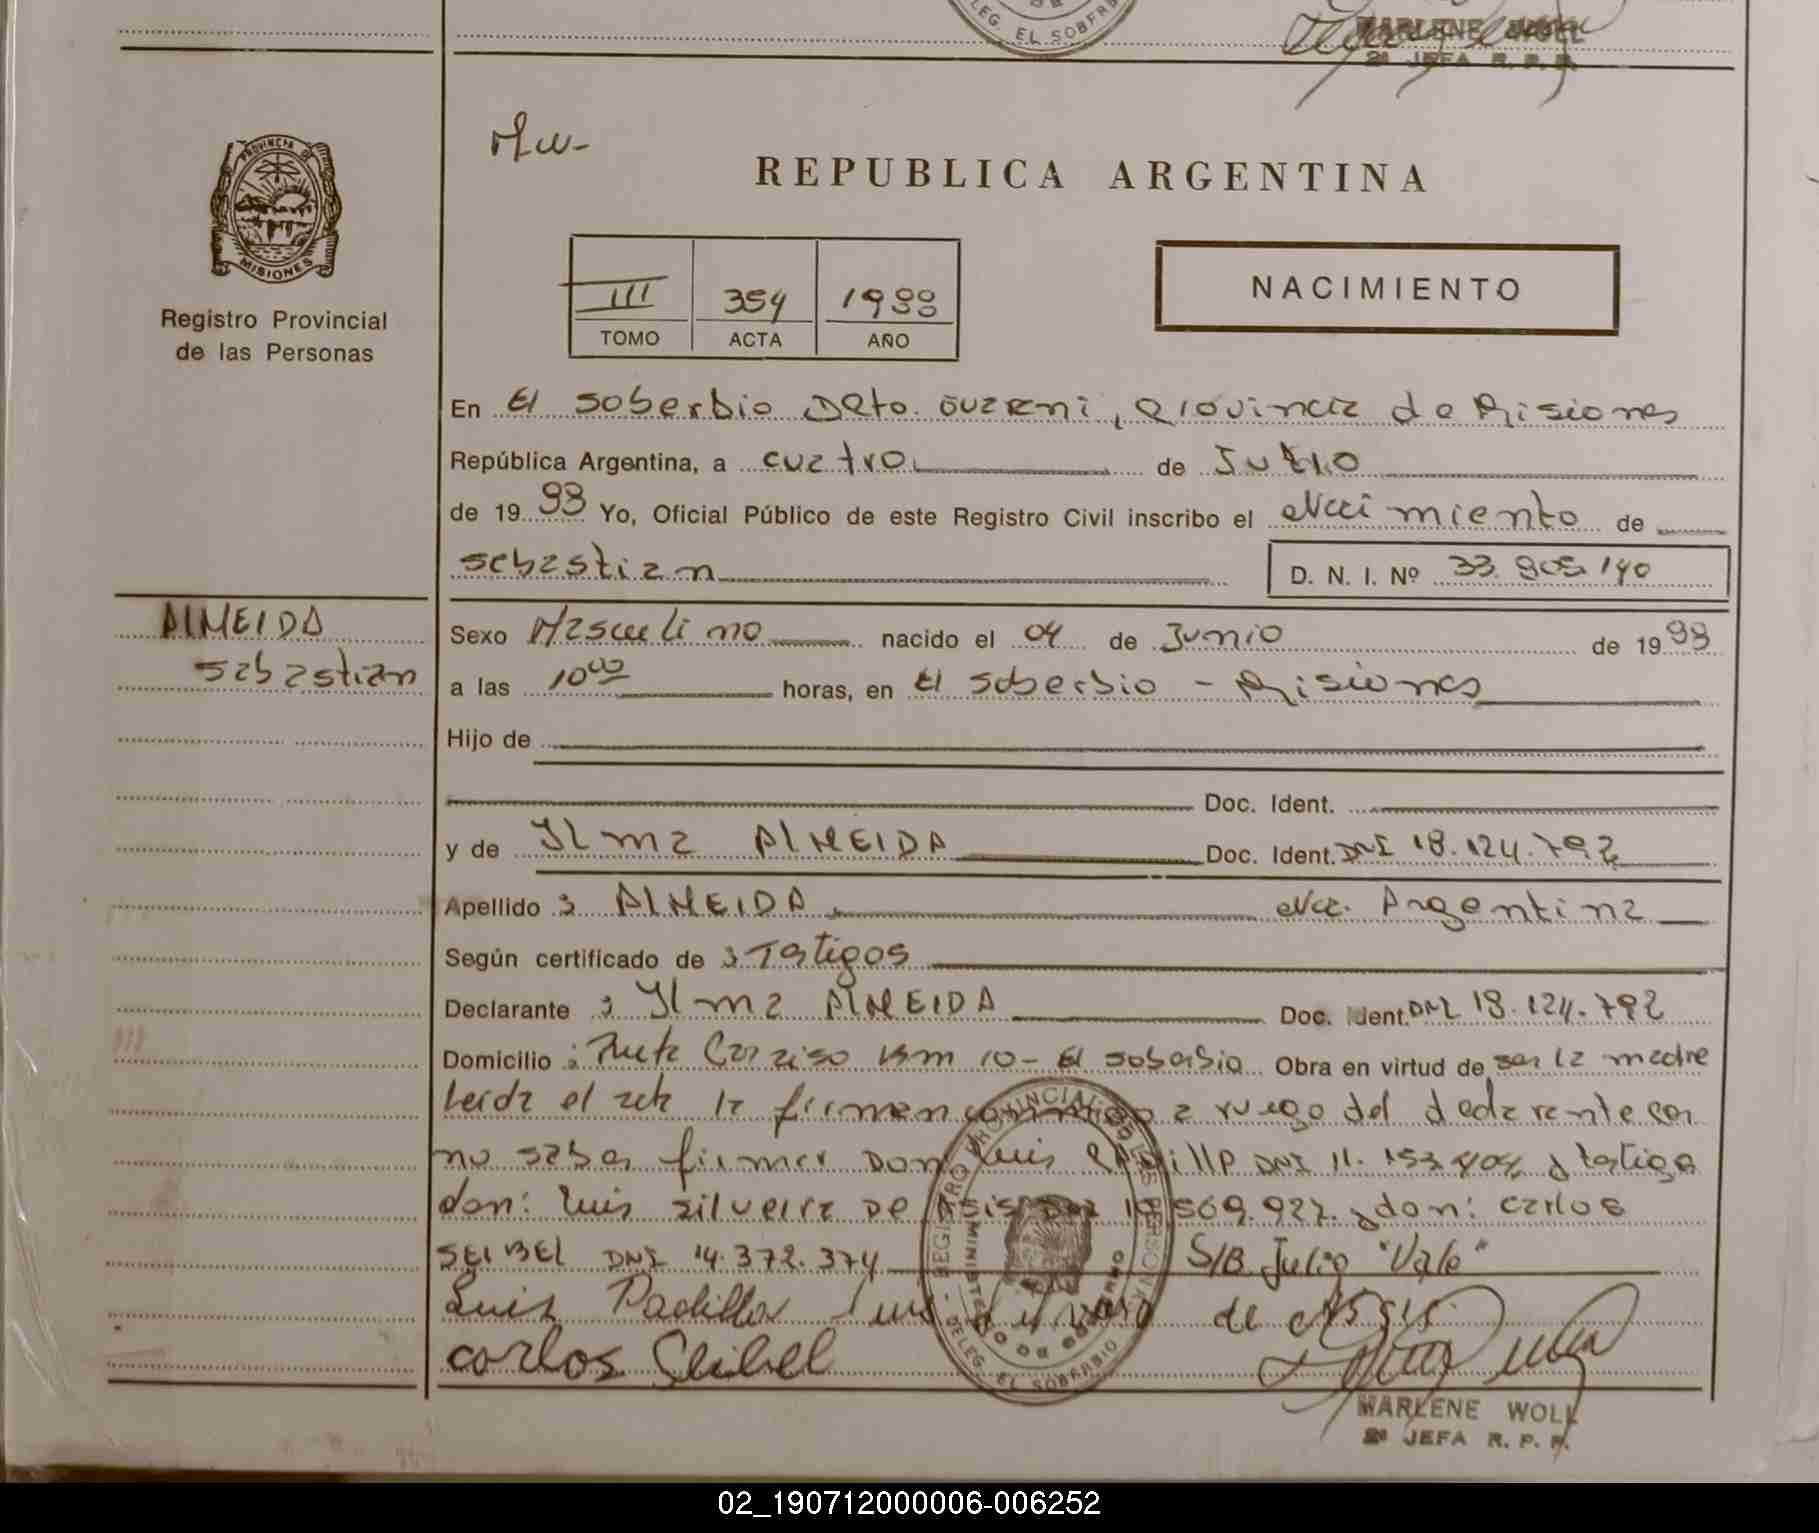 DELEG. EL SOBERBIO
MARLENE WOLL
2ª JEFA R. P. P.
PROVINCIA DE
MISIONES
REPUBLICA ARGENTINA
Registro Provincial
de las Personas
III 354 1988
TOMO ACTA AÑO
NACIMIENTO
En El Soberbio Dpto. Guarani, Provincia de Misiones
República Argentina, a cuatro de Julio
de 1988 Yo, Oficial Público de este Registro Civil inscribo el Nacimiento de
Sebastian D. N. I. Nº 33.905.140
ALMEIDA
Sebastian
Sexo Masculino nacido el 04 de Junio de 1988
a las 10 00 horas, en El Soberbio - Misiones
Hijo de
Doc. Ident.
y de Ilma ALMEIDA Doc. Ident. DNI 18.124.792
Apellido : ALMEIDA Nac. Argentina
Según certificado de : Testigos
Declarante : Ilma ALMEIDA Doc. Ident. DNI 18.124.792
Domicilio : Km 10 - El Soberbio Obra en virtud de ser la madre
Leida el acta la firman conmigo a ruego del declarante por
no saber firmar Don Luis DNI 11.153. y testigos
don: Luis Silveira De Asis DNI 569.927. y don: Carlos
SEIBEL DNI 14.372.374 S/B Julio "Vale"
Luis Padilla Luis de Assis
Carlos Seibel
REGISTRO PROVINCIAL DE LAS PERSONAS
MINISTERIO DE GOBIERNO
DELEG. EL SOBERBIO
MARLENE WOLL
2ª JEFA R. P. P.
02_190712000006-006252